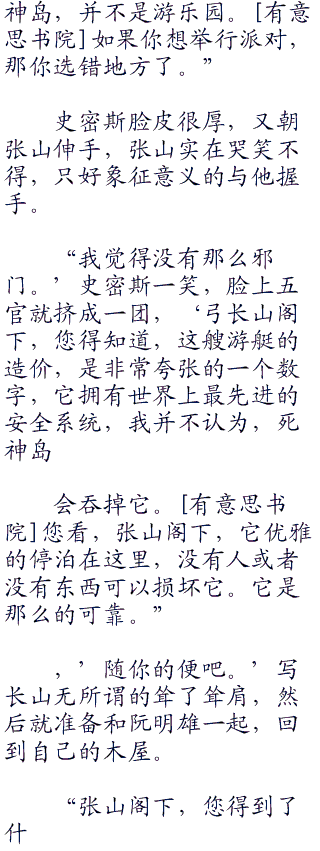 神岛，并不是游乐园。[有意
思书院]如果你想举行派对，
那你选错地方了。”
史密斯脸皮很厚，又朝
张山伸手，张山实在哭笑不
得，只好象征意义的与他握
手。
“我觉得没有那么邪
门。’史密斯一笑，脸上五
官就挤成一团，‘弓长山阁
下，您得知道，这艘游艇的
造价，是非常夸张的一个数
字，它拥有世界上最先进的
安全系统，我并不认为，死
神岛
会吞掉它。[有意思书
院]您看，张山阁下，它优雅
的停泊在这里，没有人或者
没有东西可以损坏它。它是
那么的可靠。”
，’随你的便吧。’写
长山无所谓的耸了耸肩，然
后就准备和阮明雄一起，回
到自己的木屋。
“张山阁下，您得到了
什